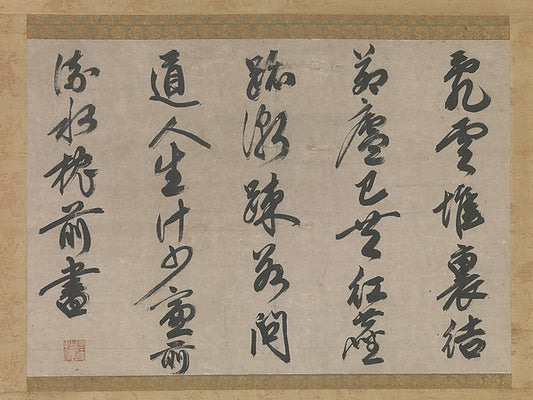 亂雲堆裏結
茅廬已共紅塵
跡漸踈若問
道人生計少窓前
流水枕前書